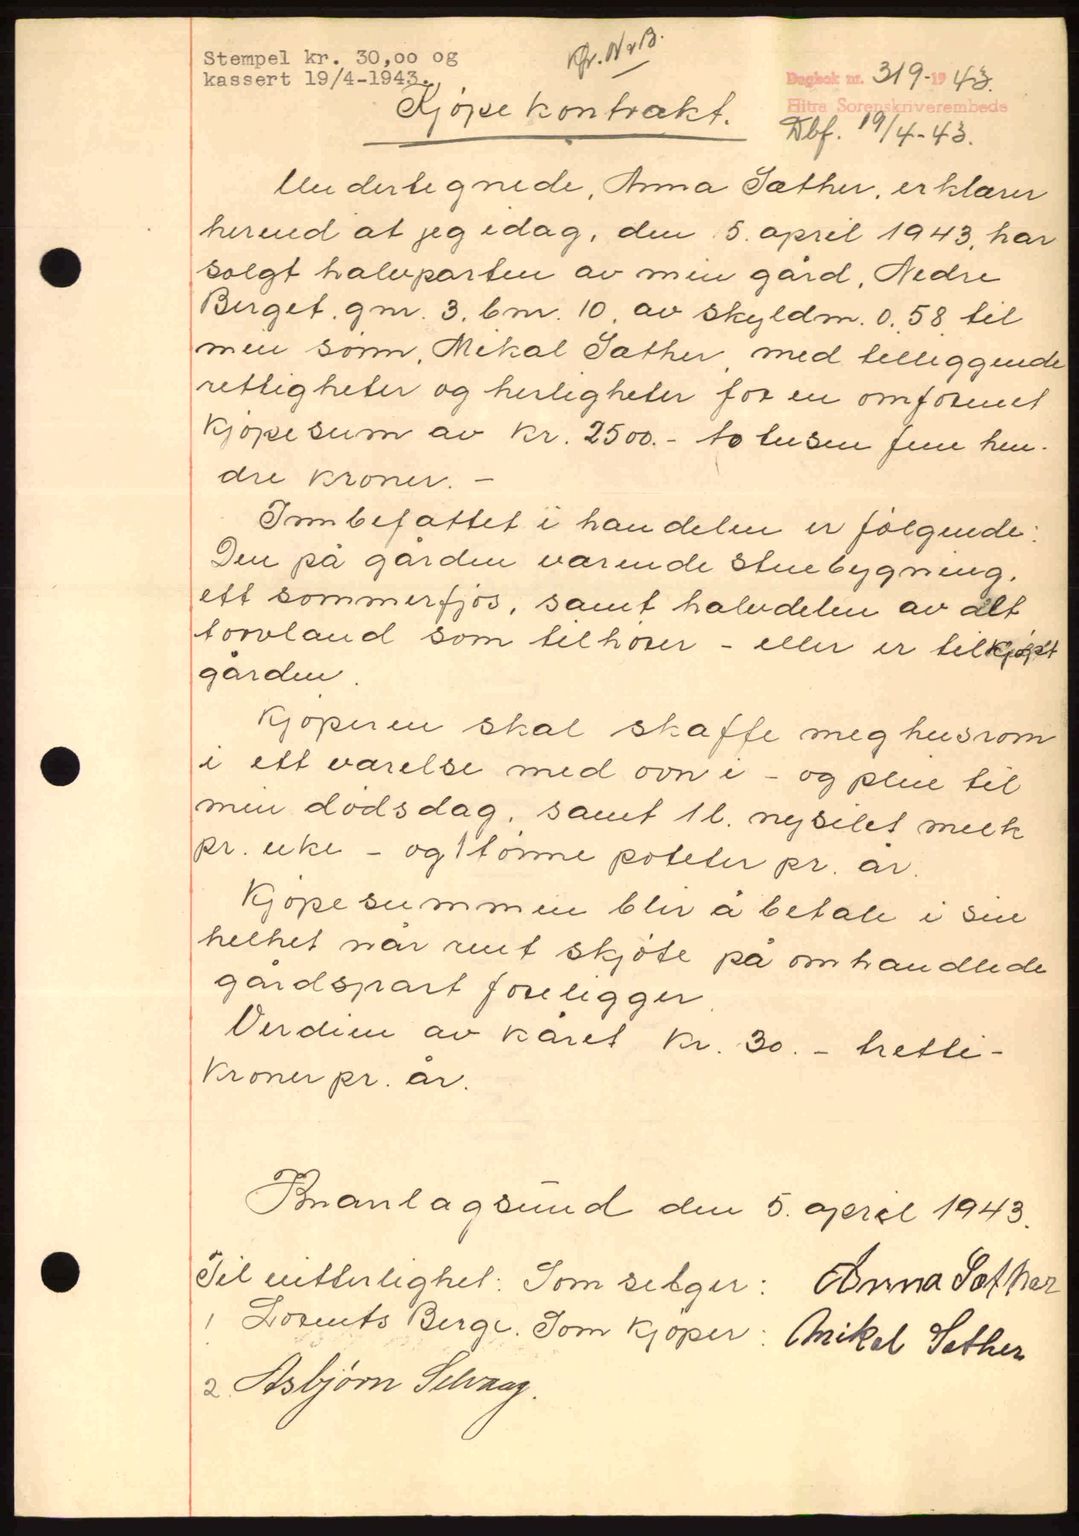 Stempel kr. 30,00 og
kassert 19/4-1943.
Kfr. N & B.
Dagbok nr. 319-1943.
Hitra Sorenskriverembede
Dbf. 19/4-43.
Kjøpekontrakt.
Undertegnede, Anna Sæther, erklærer
herved at jeg idag, den 5. april 1943, har
solgt halvparten av min gård, Nedre
Berget, gnr. 3, bnr. 10, av skyldm. 0,58 til
min sønn, Mikal Sæther, med tilliggende
rettigheter og herligheter for en omforenet
kjøpesum av kr. 2500.- to tusen fem hun-
dre kroner. -
Innbefattet i handelen er følgende:
Den på gården værende stuebygning,
ett sommerfjøs, samt halvdelen av alt
torvland som tilhører - eller er tilkjøpt
gården.
Kjøperen skal skaffe meg husrom
i ett værelse med ovn i - og pleie til
min dødsdag, samt 1 l. nysilet melk
pr. uke - og 1 tønne poteter pr. år.
Kjøpesummen blir å betale i sin
helhet når rent skjøte på omhandlede
gårdspart foreligger.
Verdien av kåret kr. 30. - tretti-
kroner pr. år.
Knarlagsund den 5. april 1943.
Til vitterlighet: Som selger: Anna Sæther
1 Lorents Berge. Som kjøper: Mikal Sæther
2. Asbjørn Selvaag.